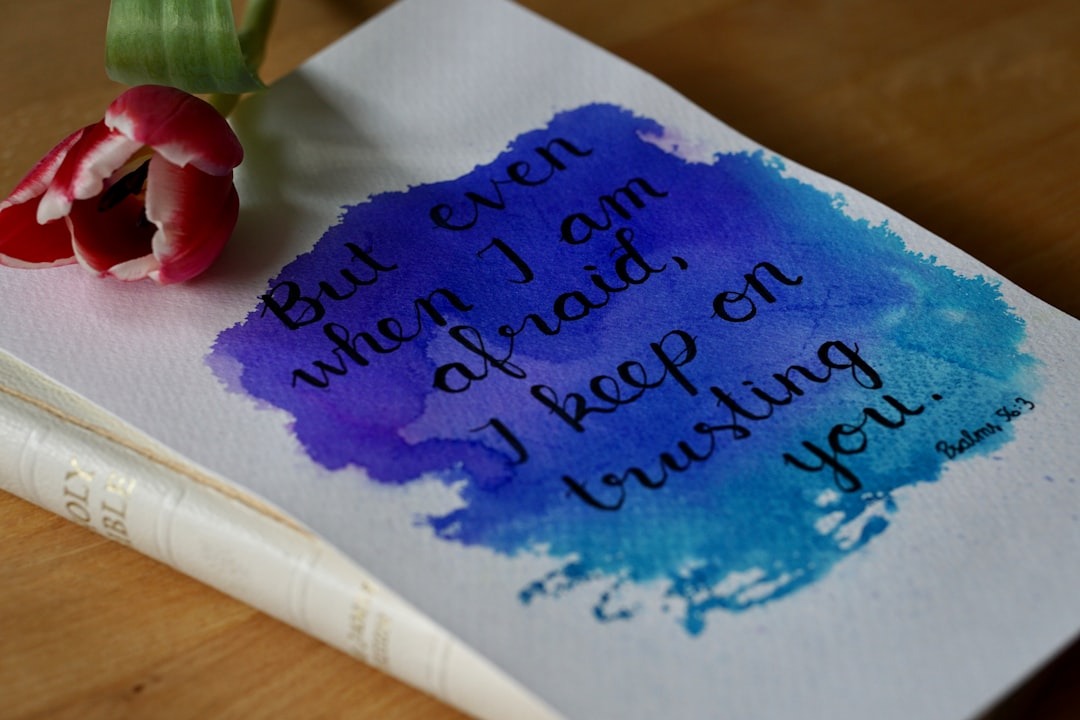 But even
when I am
afraid,
I keep on
trusting
you.
Psalms 56:3